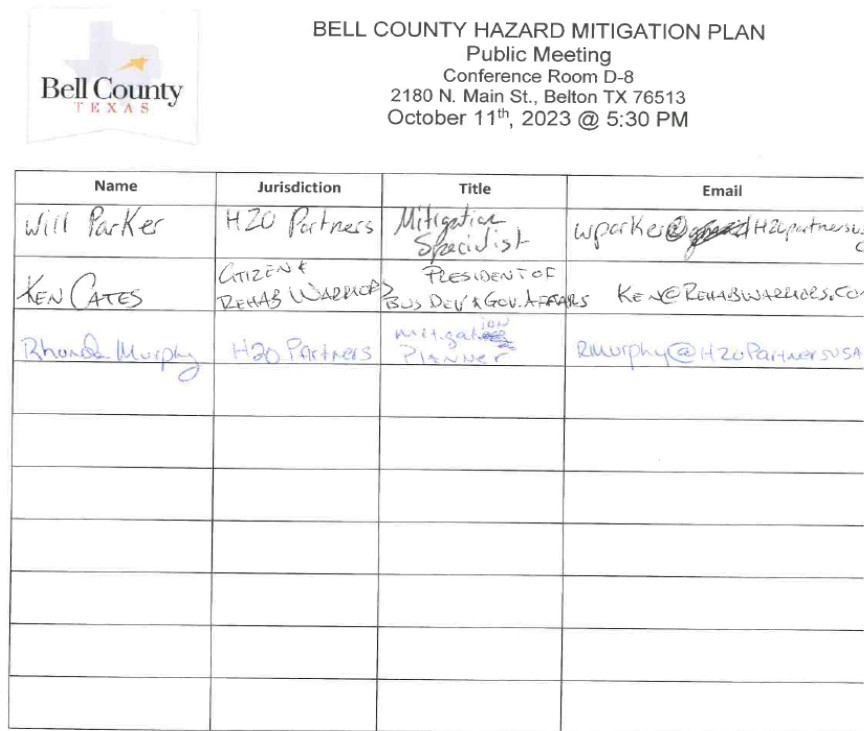 Bell County
TEXAS
BELL COUNTY HAZARD MITIGATION PLAN
Public Meeting
Conference Room D-8
2180 N. Main St., Belton TX 76513
October 11th, 2023 @ 5:30 PM
Name Jurisdiction Title Email
Will Parker H2O Partners Mitigation
Specialist wparker@ H2opartnersus
Ken Cates Citizen &
Rehab Warriors President of
Bus Dev & Gov. Affairs Ken@Rehabwarriors.com
Rhonda Murphy H2O Partners Mitigation
Planner RMurphy@H2OPartnersUSA